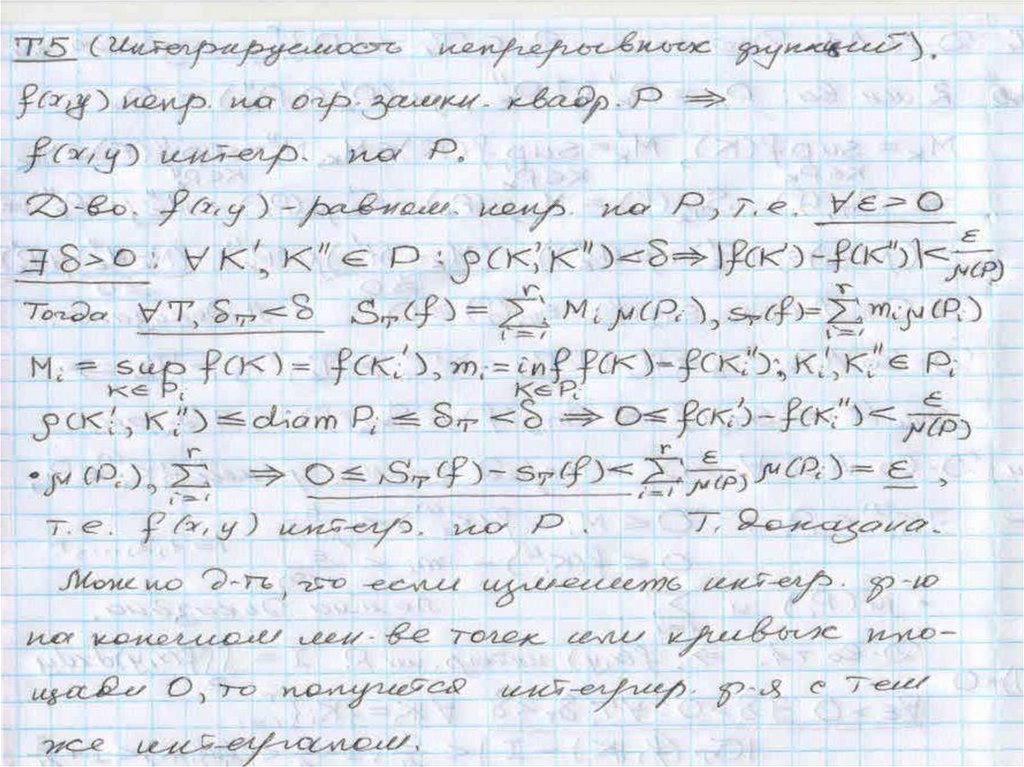 Т5 (Интегрируемость непрерывных функций).
f(x,y) непр. на огр. замкн. квадр. P ⇒
f(x,y) интегр. на P.
Д-во. f(x,y) - равном. непр. на P, т.е. ∀ε>0
∃δ>0 : ∀K', K'' ∈ P : ρ(K', K'')<δ ⇒ |f(K')-f(K'')|< ε/μ(P)
Тогда ∀T, δ_T<δ S_T(f) = Σ_{i=1}^{r} M_i μ(P_i), s_T(f)= Σ_{i=1}^{r} m_i μ(P_i)
M_i = sup_{K∈P_i} f(K) = f(K_i'), m_i = inf_{K∈P_i} f(K) = f(K_i''); K_i', K_i'' ∈ P_i
ρ(K_i', K_i'') ≤ diam P_i ≤ δ_T < δ ⇒ 0 ≤ f(K_i') - f(K_i'') < ε/μ(P)
• μ(P_i), Σ_{i=1}^{r} ⇒ 0 ≤ S_T(f) - s_T(f) < Σ_{i=1}^{r} ε/μ(P) μ(P_i) = ε,
т.е. f(x,y) интегр. по P. Т. доказана.
Можно д-ть, что если изменить интегр. ф-ю
на конечном мн-ве точек или кривых пло-
щади 0, то получится интегрир. ф-я с тем
же интегралом.